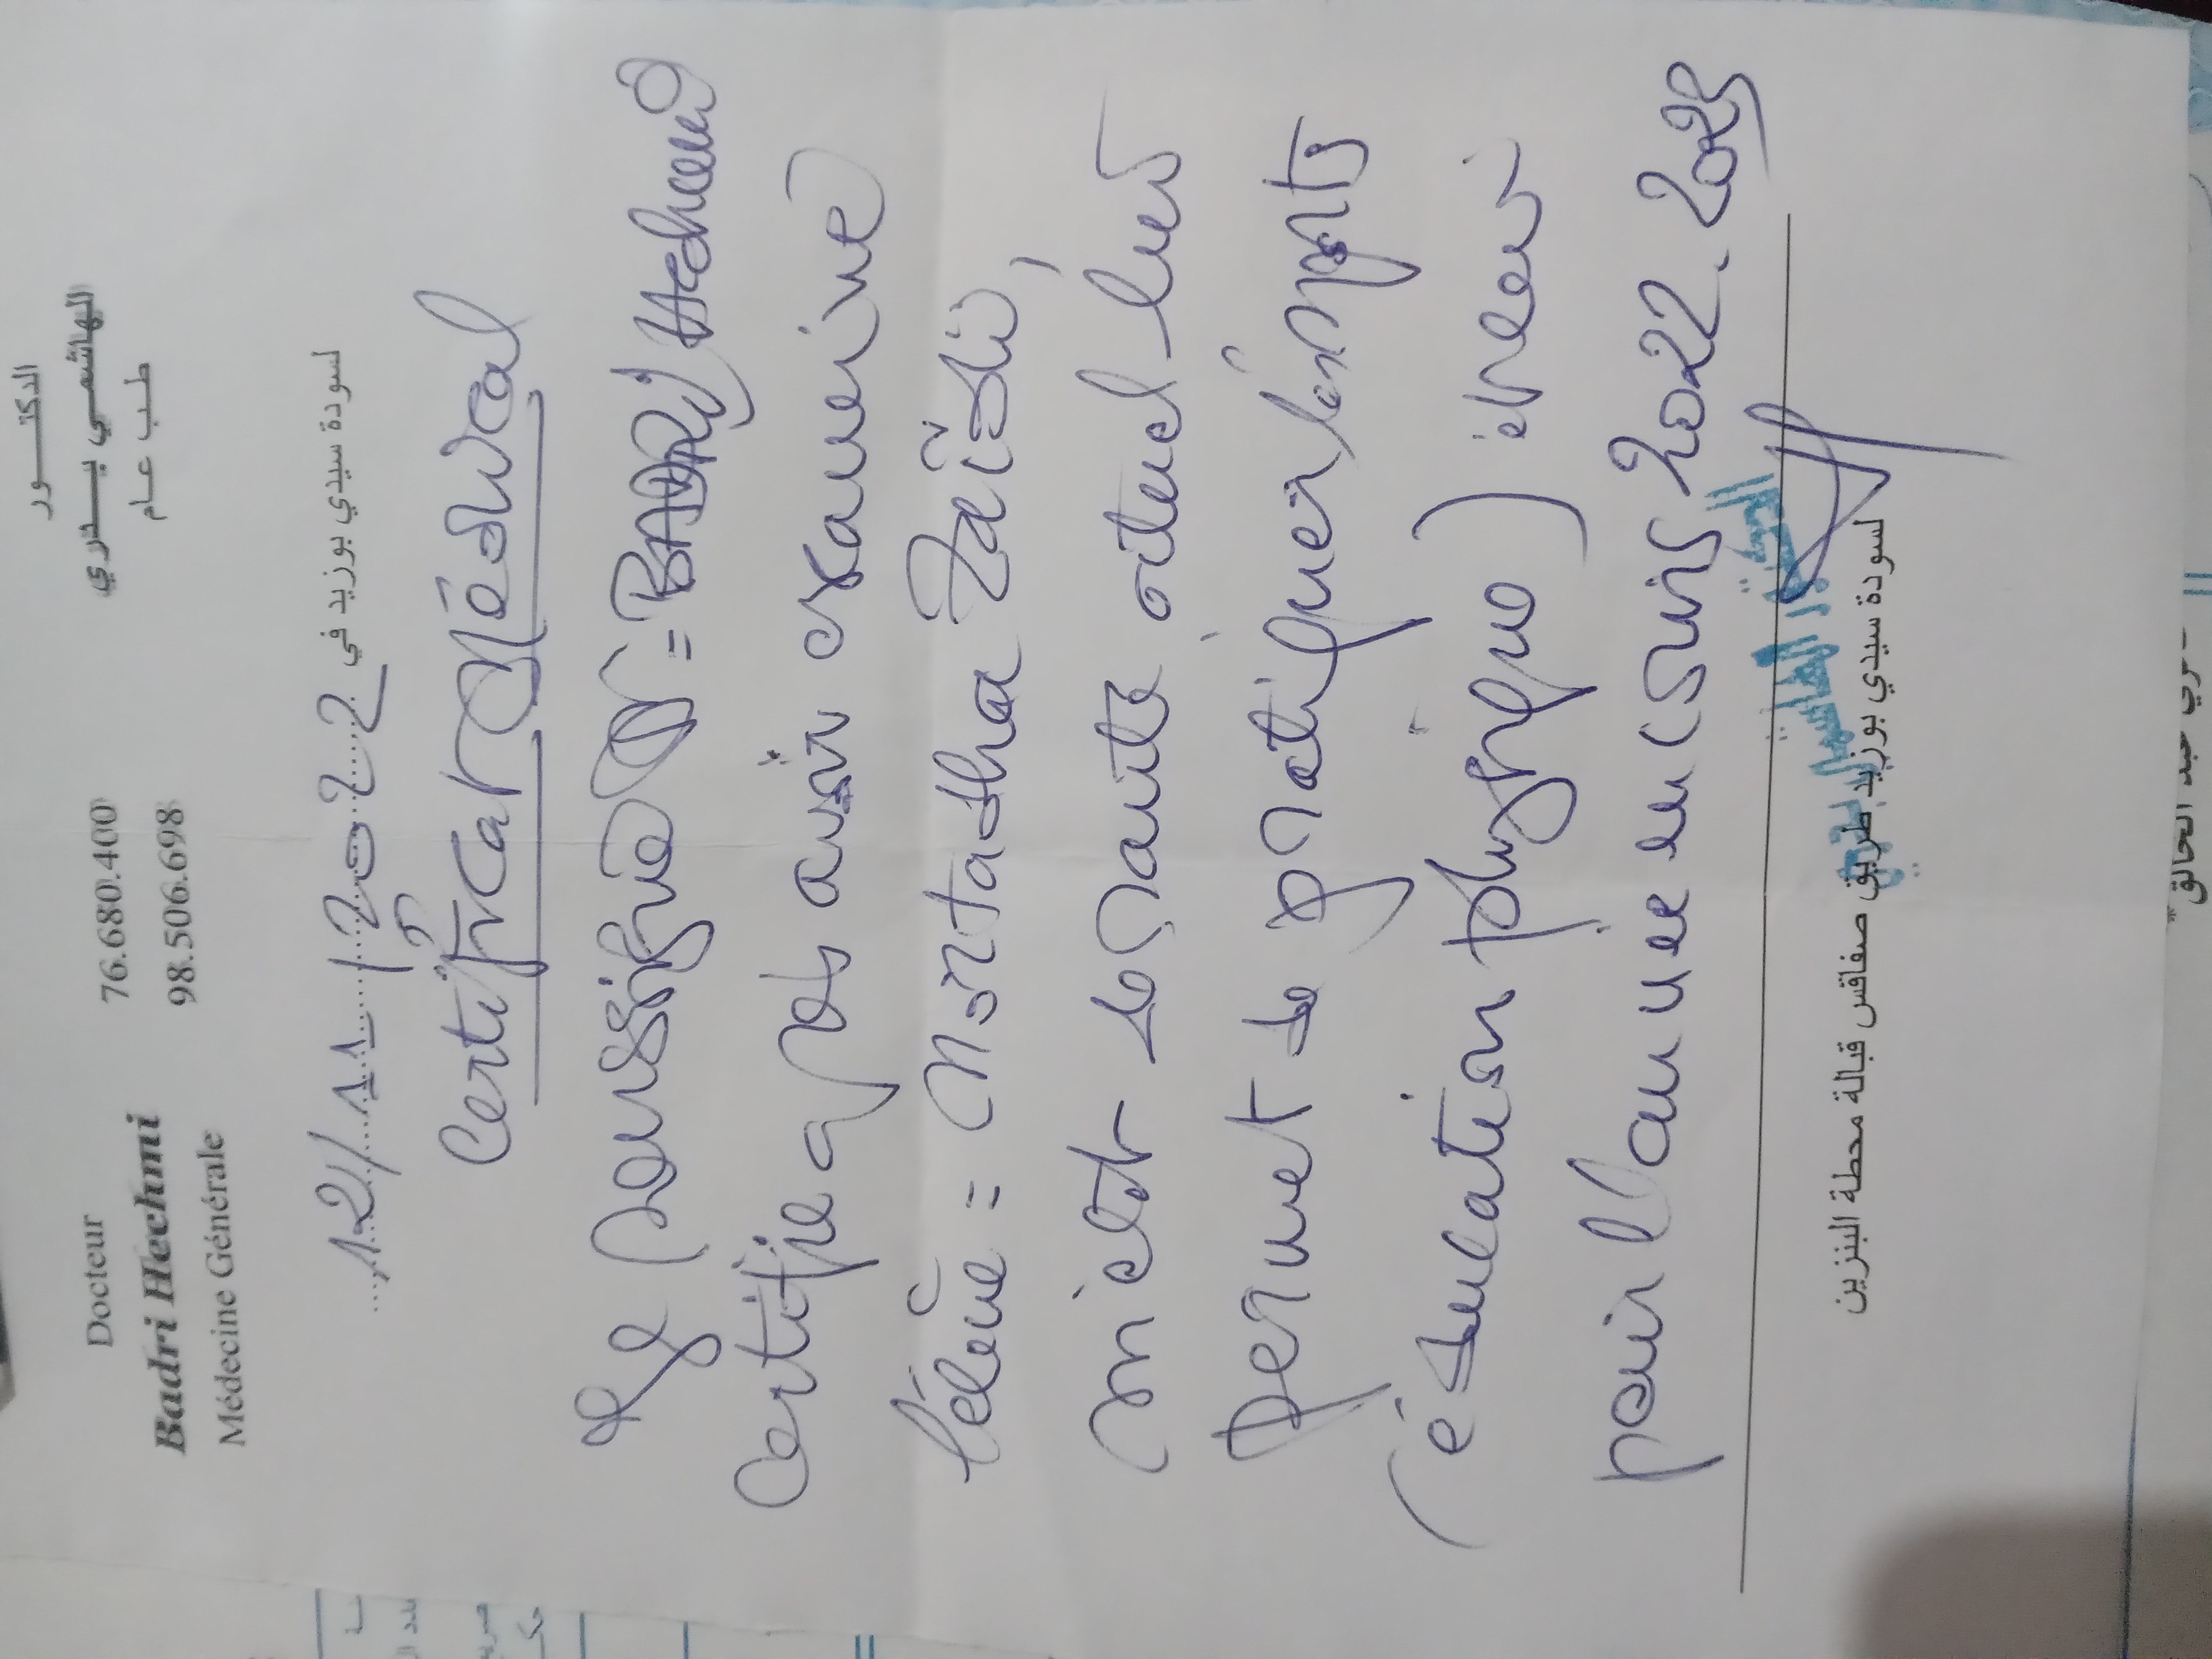 Docteur
Badri Hechmi
Médecine Générale
76.680.400
98.506.698
الدكتور
الهاشمي بدري
طب عام
لسودة سيدي بوزيد في 12/11/2022
Certificat Médical
Je soussigné Dr = BADRI Hechmi
Certifie après avoir examiné
l'élève = Zaidi,
état de santé actuel lui
permet de pratiquer
(éducation physique)
pour l'année en cours 2022.2023
لسودة سيدي بوزيد طريق صفاقس قبالة محطة البنزين